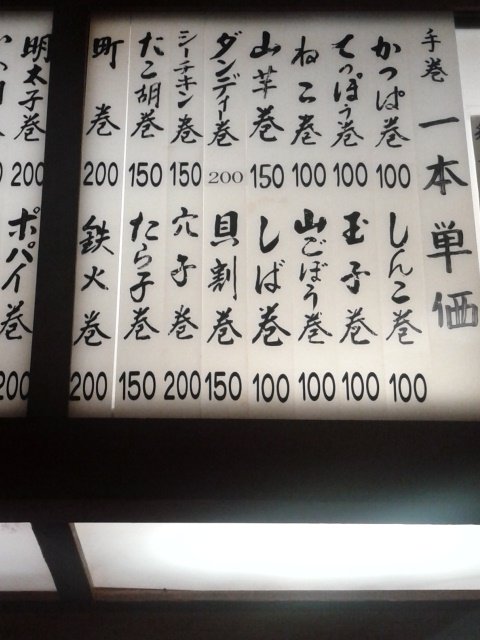 手巻 一本単価
かっぱ巻 100
てっぽう巻 100
ねこ巻 100
山芋巻 150
ダンディー巻 200
シーチキン巻 150
たこ胡巻 150
町巻 200
明太子巻 200
しんこ巻 100
玉子巻 100
山ごぼう巻 100
しば巻 100
貝割巻 150
穴子巻 200
たら子巻 150
鉄火巻 200
ポパイ巻 200